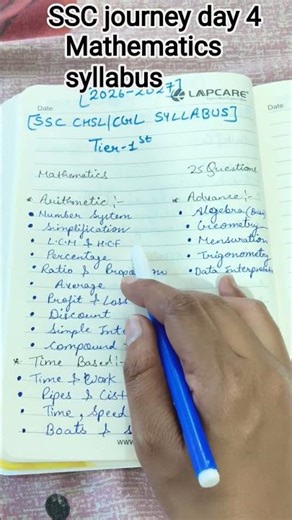 SSC journey day 4
Mathematics
syllabus
[2026-2027]
LAPCARE
Date:
Date
[SSC CHSL/CGL SYLLABUS]
Tier-1st
Mathematics
25 Questions
* Arithmetic :-
• Number System
• Simplification
• L.C.M & H.C.F
• Percentage
• Ratio & Propo n
• Average
• Profit & Loss
• Discount
• Simple Inte
• Compound
* Time Based :-
• Time & Work
• Pipes & Cist
• Time, Speed
• Boats & S
* Advance :-
• Algebra (Bas
• Geometry
• Mensuration
• Trigonometry
• Data Interpreta
www